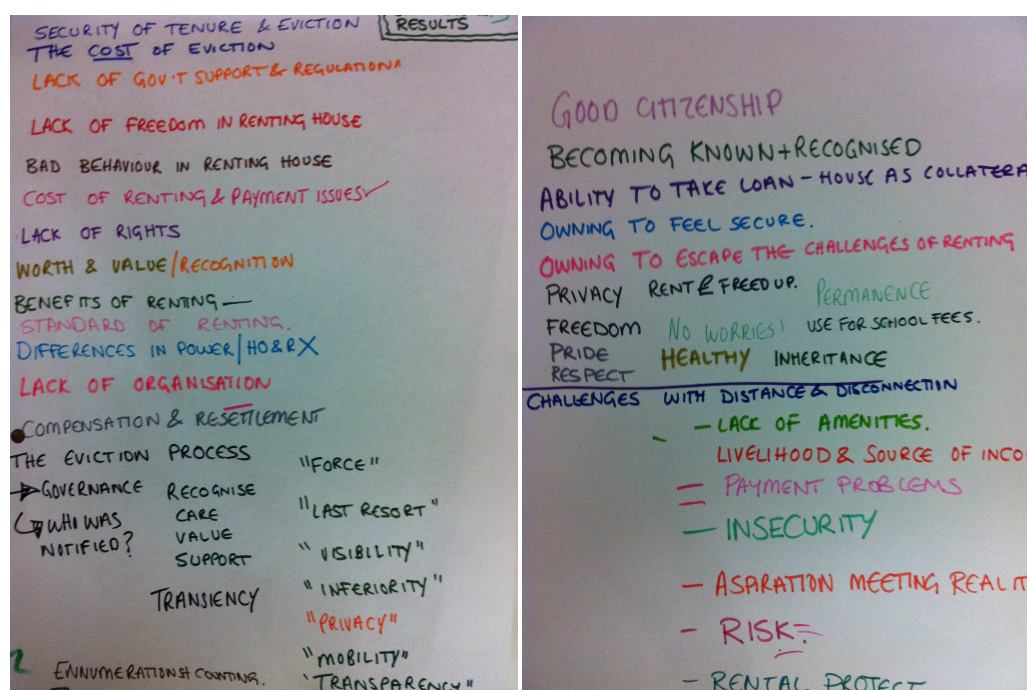 RESULTS
SECURITY OF TENURE & EVICTION
THE COST OF EVICTION
LACK OF GOV'T SUPPORT & REGULATION
LACK OF FREEDOM IN RENTING HOUSE
BAD BEHAVIOUR IN RENTING HOUSE
COST OF RENTING & PAYMENT ISSUES
LACK OF RIGHTS
WORTH & VALUE/RECOGNITION
BENEFITS OF RENTING —
STANDARD OF RENTING.
DIFFERENCES IN POWER/HO&RX
LACK OF ORGANISATION
COMPENSATION & RESETTLEMENT
THE EVICTION PROCESS
GOVERNANCE
WHO WAS
NOTIFIED?
RECOGNISE
CARE
VALUE
SUPPORT
TRANSIENCY
"FORCE"
"LAST RESORT"
"VISIBILITY"
"INFERIORITY"
"PRIVACY"
"MOBILITY"
"TRANSPARENCY"
ENNUMERATIONS & COUNTING.
GOOD CITIZENSHIP
BECOMING KNOWN + RECOGNISED
ABILITY TO TAKE LOAN - HOUSE AS COLLATERA
OWNING TO FEEL SECURE.
OWNING TO ESCAPE THE CHALLENGES OF RENTING
PRIVACY RENT £ FREED UP. PERMANENCE
FREEDOM NO WORRIES! USE FOR SCHOOL FEES.
PRIDE HEALTHY INHERITANCE
RESPECT
CHALLENGES WITH DISTANCE & DISCONNECTION
- LACK OF AMENITIES.
LIVELIHOOD & SOURCE OF INCO
= PAYMENT PROBLEMS
- INSECURITY
- ASARATION MEETING REALIT
- RISK.
- RENTAL PROTECT